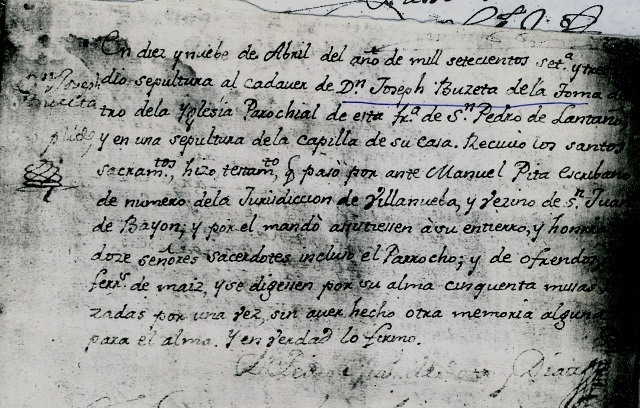 En diez y nuebe de Abril del año de mill setecientos set.ª y tres
Dn Joseph
Buceta
dio sepultura al cadaver de Dn Joseph Buzeta de la Toma
tro dela Yglesia Parochial de esta fr.ª de S.n Pedro de Lantaño
y en una sepultura dela capilla de su casa. Recuvio los santos
sacram.tos, hizo testam.to, q paso por ante Manuel Pita Escribano
de numero dela Jurisdiccion de Villanueba, y vezino de S.n Juan
de Bayon, y por el mandò assitiesen à su entierro, y honrras
doze señores sacerdotes inclusò el Parrocho; y de ofrenda
ferr.s de maiz, y se digesen por su alma cinquenta missas
zadas por una vez, sin aver hecho otra memoria alguna
para el alma. Y en verdad lo firmo.